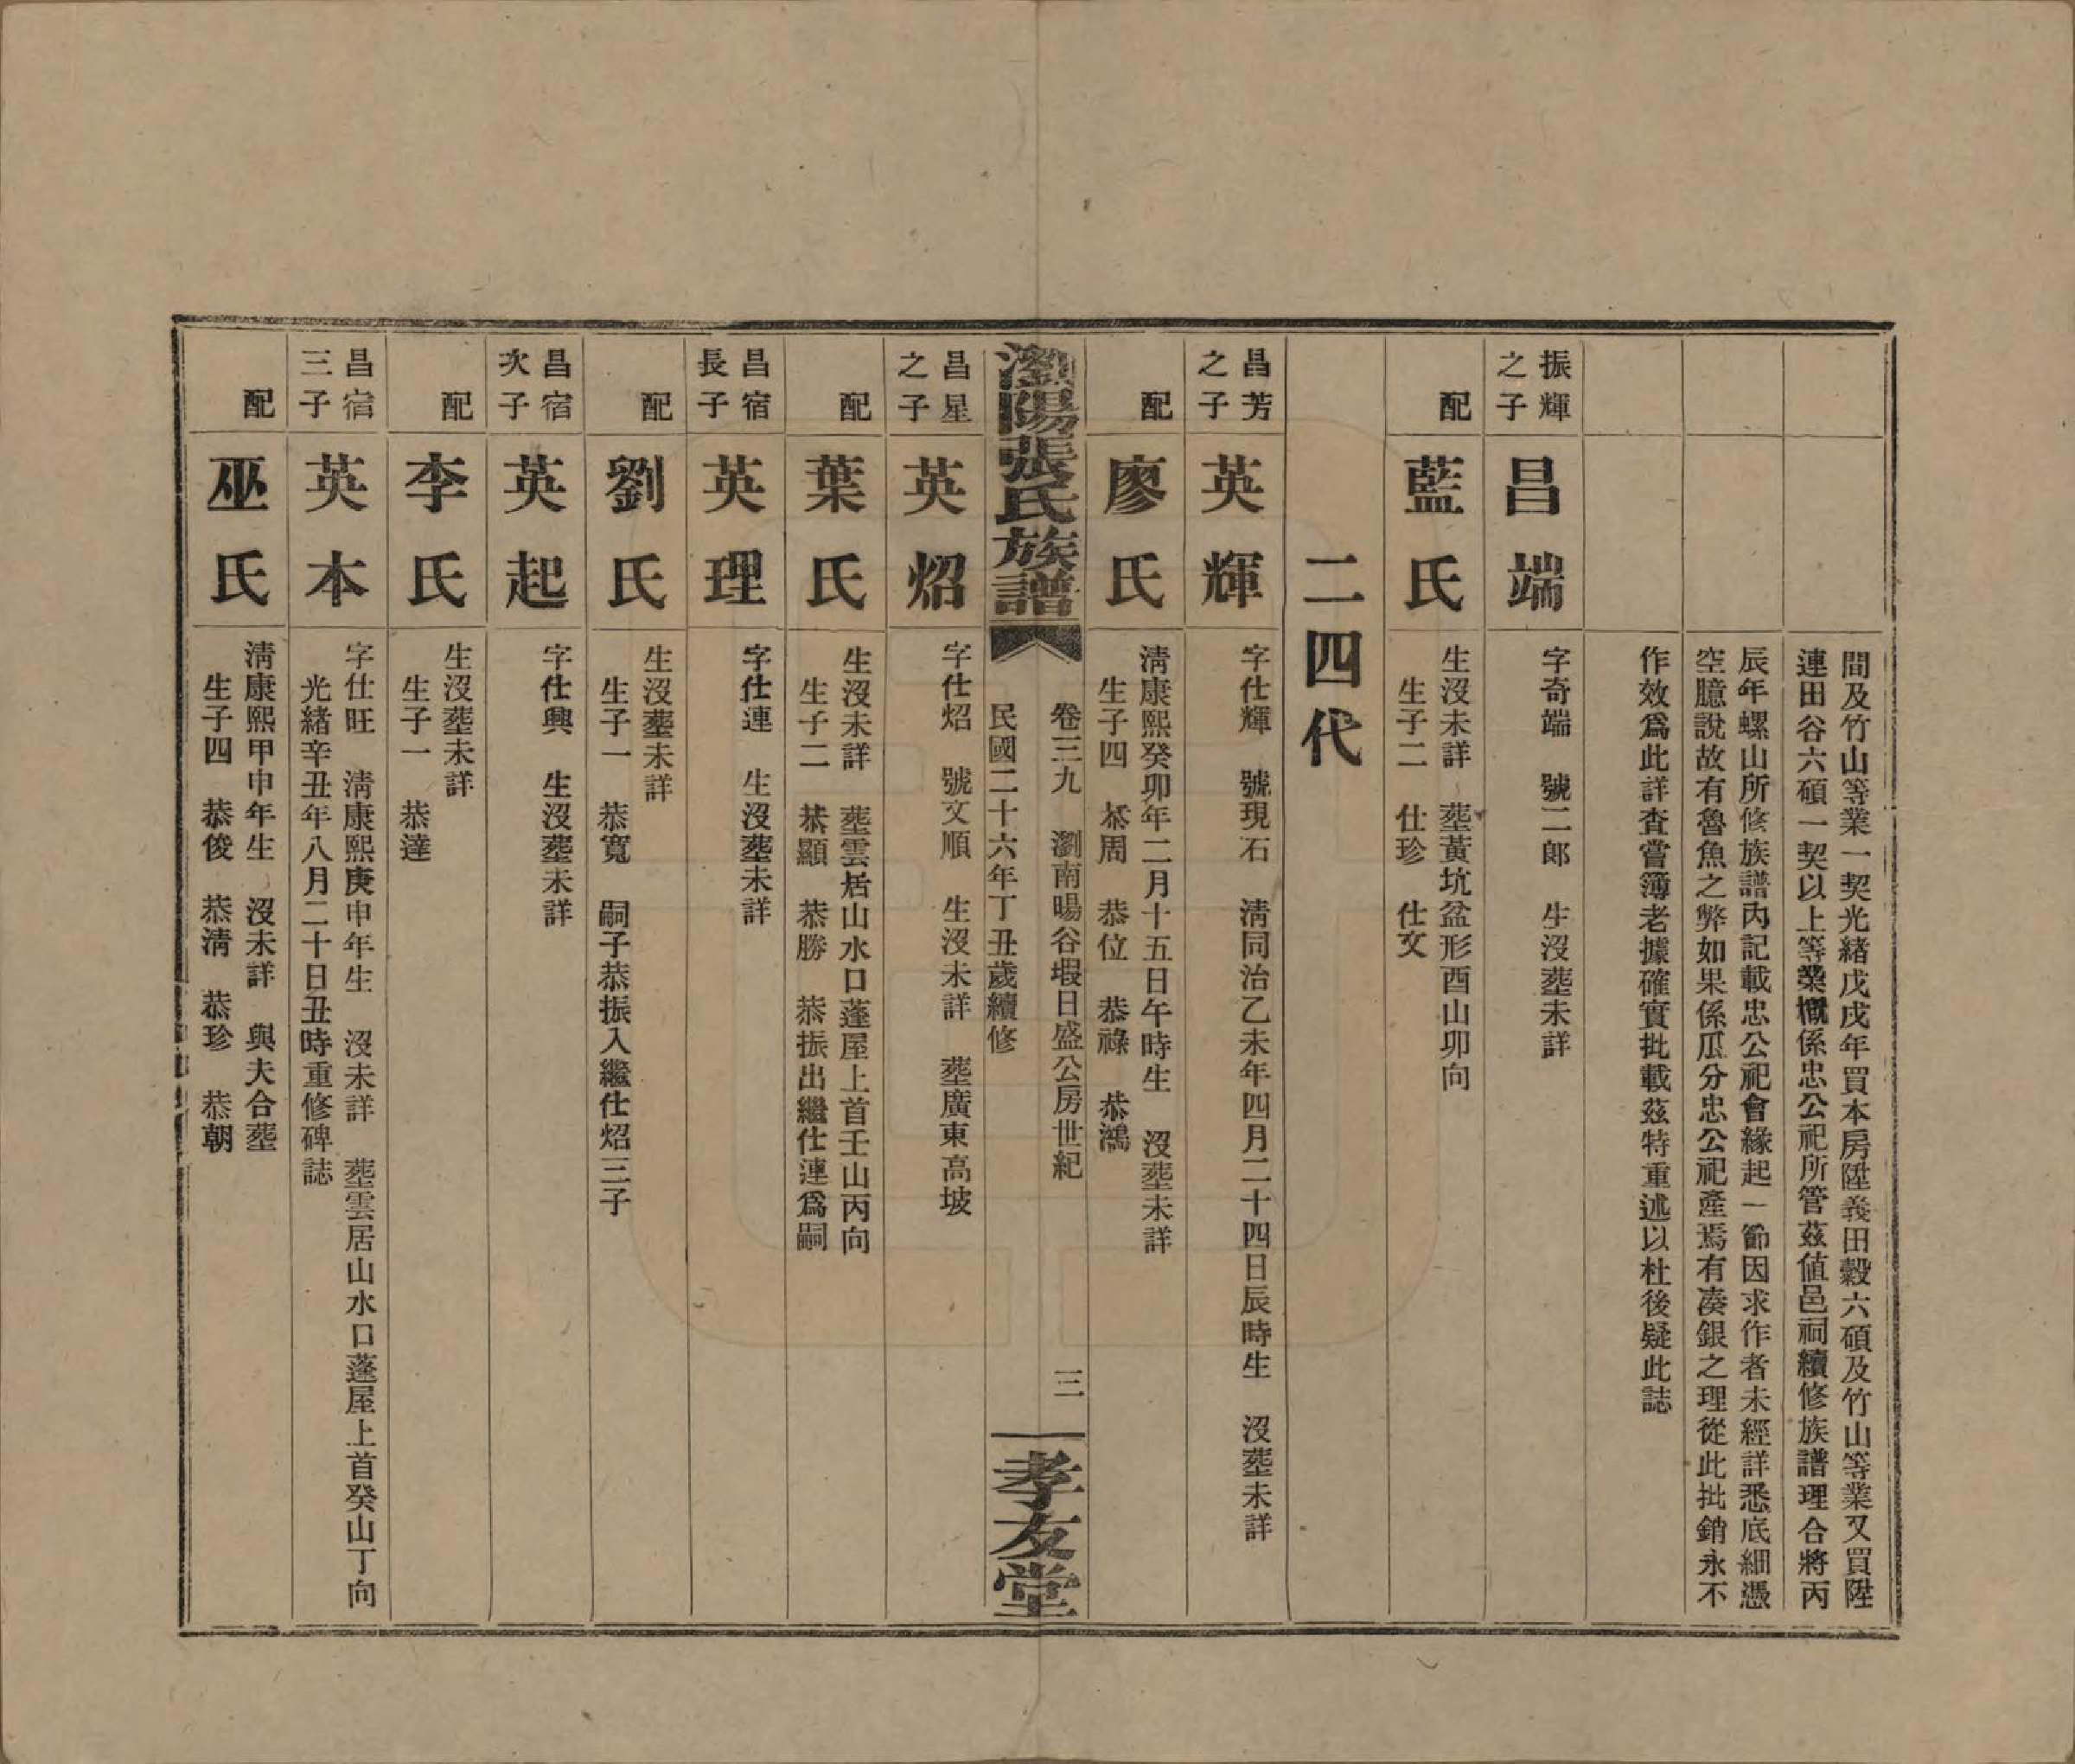 間及竹山等業一契光緒戊戌年買本房陞義田穀六碩及竹山等業又買陞
連田谷六碩一契以上等業概係忠公祀所管茲值邑祠續修族譜理合將丙
辰年螺山所修族譜內記載忠公祀會緣起一節因求作者未經詳悉底細憑
空臆說故有魯魚之弊如果係瓜分忠公祀產焉有湊銀之理從此批銷永不
作效爲此詳查嘗簿老據確實批載茲特重述以杜後疑此誌
振輝
之子
昌端
字奇端　號二郎　生沒塟未詳
配
藍氏
生沒未詳　塟黃坑盆形酉山卯向
生子二　仕珍　仕文
二四代
昌芳
之子
英輝
字仕輝　號現石　淸同治乙未年四月二十四日辰時生　沒塟未詳
配
廖氏
淸康熙癸卯年二月十五日午時生　沒塟未詳
生子四　恭周　恭位　恭祿　恭鴻
瀏陽張氏族譜
卷三九　瀏南暘谷塅日盛公房世紀
民國二十六年丁丑歲續修
三
孝友堂
昌星
之子
英炤
字仕炤　號文順　生沒未詳　塟廣東高坡
配
葉氏
生沒未詳　塟雲居山水口蓬屋上首壬山丙向
生子二　恭顯　恭勝　恭振出繼仕連爲嗣
昌宿
長子
英理
字仕連　生沒塟未詳
配
劉氏
生沒塟未詳
生子一　恭寬　嗣子恭振入繼仕炤三子
昌宿
次子
英起
字仕興　生沒塟未詳
配
李氏
生沒塟未詳
生子一　恭達
昌宿
三子
英本
字仕旺　淸康熙庚申年生　沒未詳　塟雲居山水口蓬屋上首癸山丁向
光緒辛丑年八月二十日丑時重修碑誌
配
巫氏
淸康熙甲申年生　沒未詳　與夫合塟
生子四　恭俊　恭淸　恭珍　恭朝